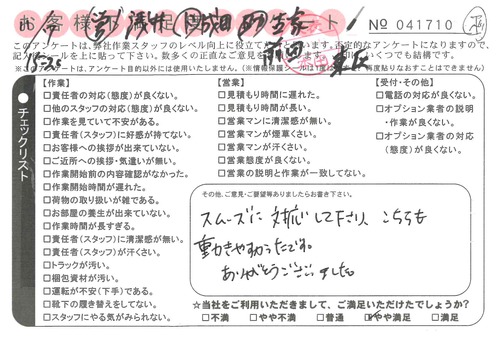 お客様 足 ート
No 041710
このアンケートは、弊社作業スタッフのレベル向上に役立て 否定的なアンケートになりますので、
記入 シールを上に貼って下さい。数多くの正直なご意見を いくつでも結構です。
※このアンケートは、アンケート目的以外には使用いたしません。
チェックリスト
【作業】
□責任者の対応(態度)が良くない。
□他のスタッフの対応(態度)が良くない。
□作業を見ていて不安がある。
□責任者(スタッフ)に好感が持てない。
□お客様への挨拶が出来ていない。
□ご近所への挨拶・気遣いが無い。
□作業開始前の内容確認がなかった。
□作業開始時間が遅れた。
□荷物の取り扱いが雑である。
□お部屋の養生が出来ていない。
□作業時間が長すぎる。
□責任者(スタッフ)に清潔感が無い。
□責任者(スタッフ)が汗くさい。
□トラックが汚い。
□梱包資材が汚い。
□運転が不安(下手)である。
□靴下の履き替えをしてない。
□スタッフにやる気がみられない。
【営業】
□見積もり時間に遅れた。
□見積もり時間が長い。
□営業マンに清潔感が無い。
□営業マンが煙草くさい。
□営業マンが汗くさい。
□営業態度が良くない。
□営業の説明と作業が一致してない。
【受付・その他】
□電話の対応が良くない。
□オプション業者の説明
・作業が良くない。
□オプション業者の対応
(態度)が良くない。
その他、ご意見・ご要望等ありましたらお書き下さい。
スムーズに対応して下さり、こちらも
動きやすかったです。
ありがとうございました。
☆当社をご利用いただきまして、ご満足いただけたでしょうか?
□不満 □やや不満 □普通 □やや満足 □満足